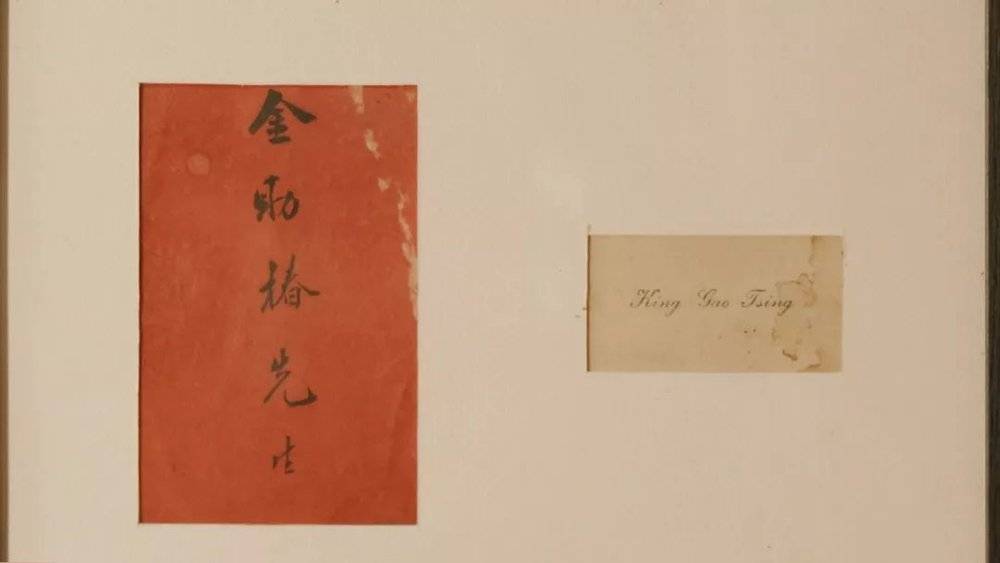 金椿先生
King Gao Tsing